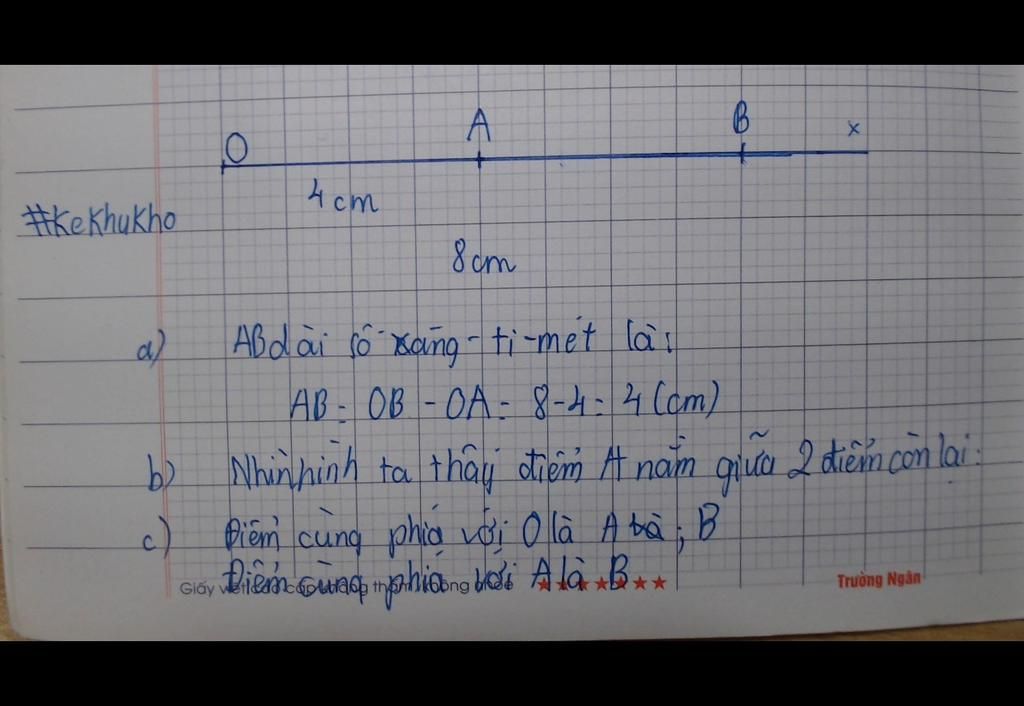 O A B x
4 cm
#Kekhukho
8 cm
a) AB dài số xăng-ti-mét là:
AB = OB - OA = 8-4 = 4 (cm)
b) Nhìn hình ta thấy điểm A nằm giữa 2 điểm còn lại.
c) Điểm cùng phía với O là A và; B
Điểm cùng phía với A là B
Giấy ★★★★★★
Trường Ngân